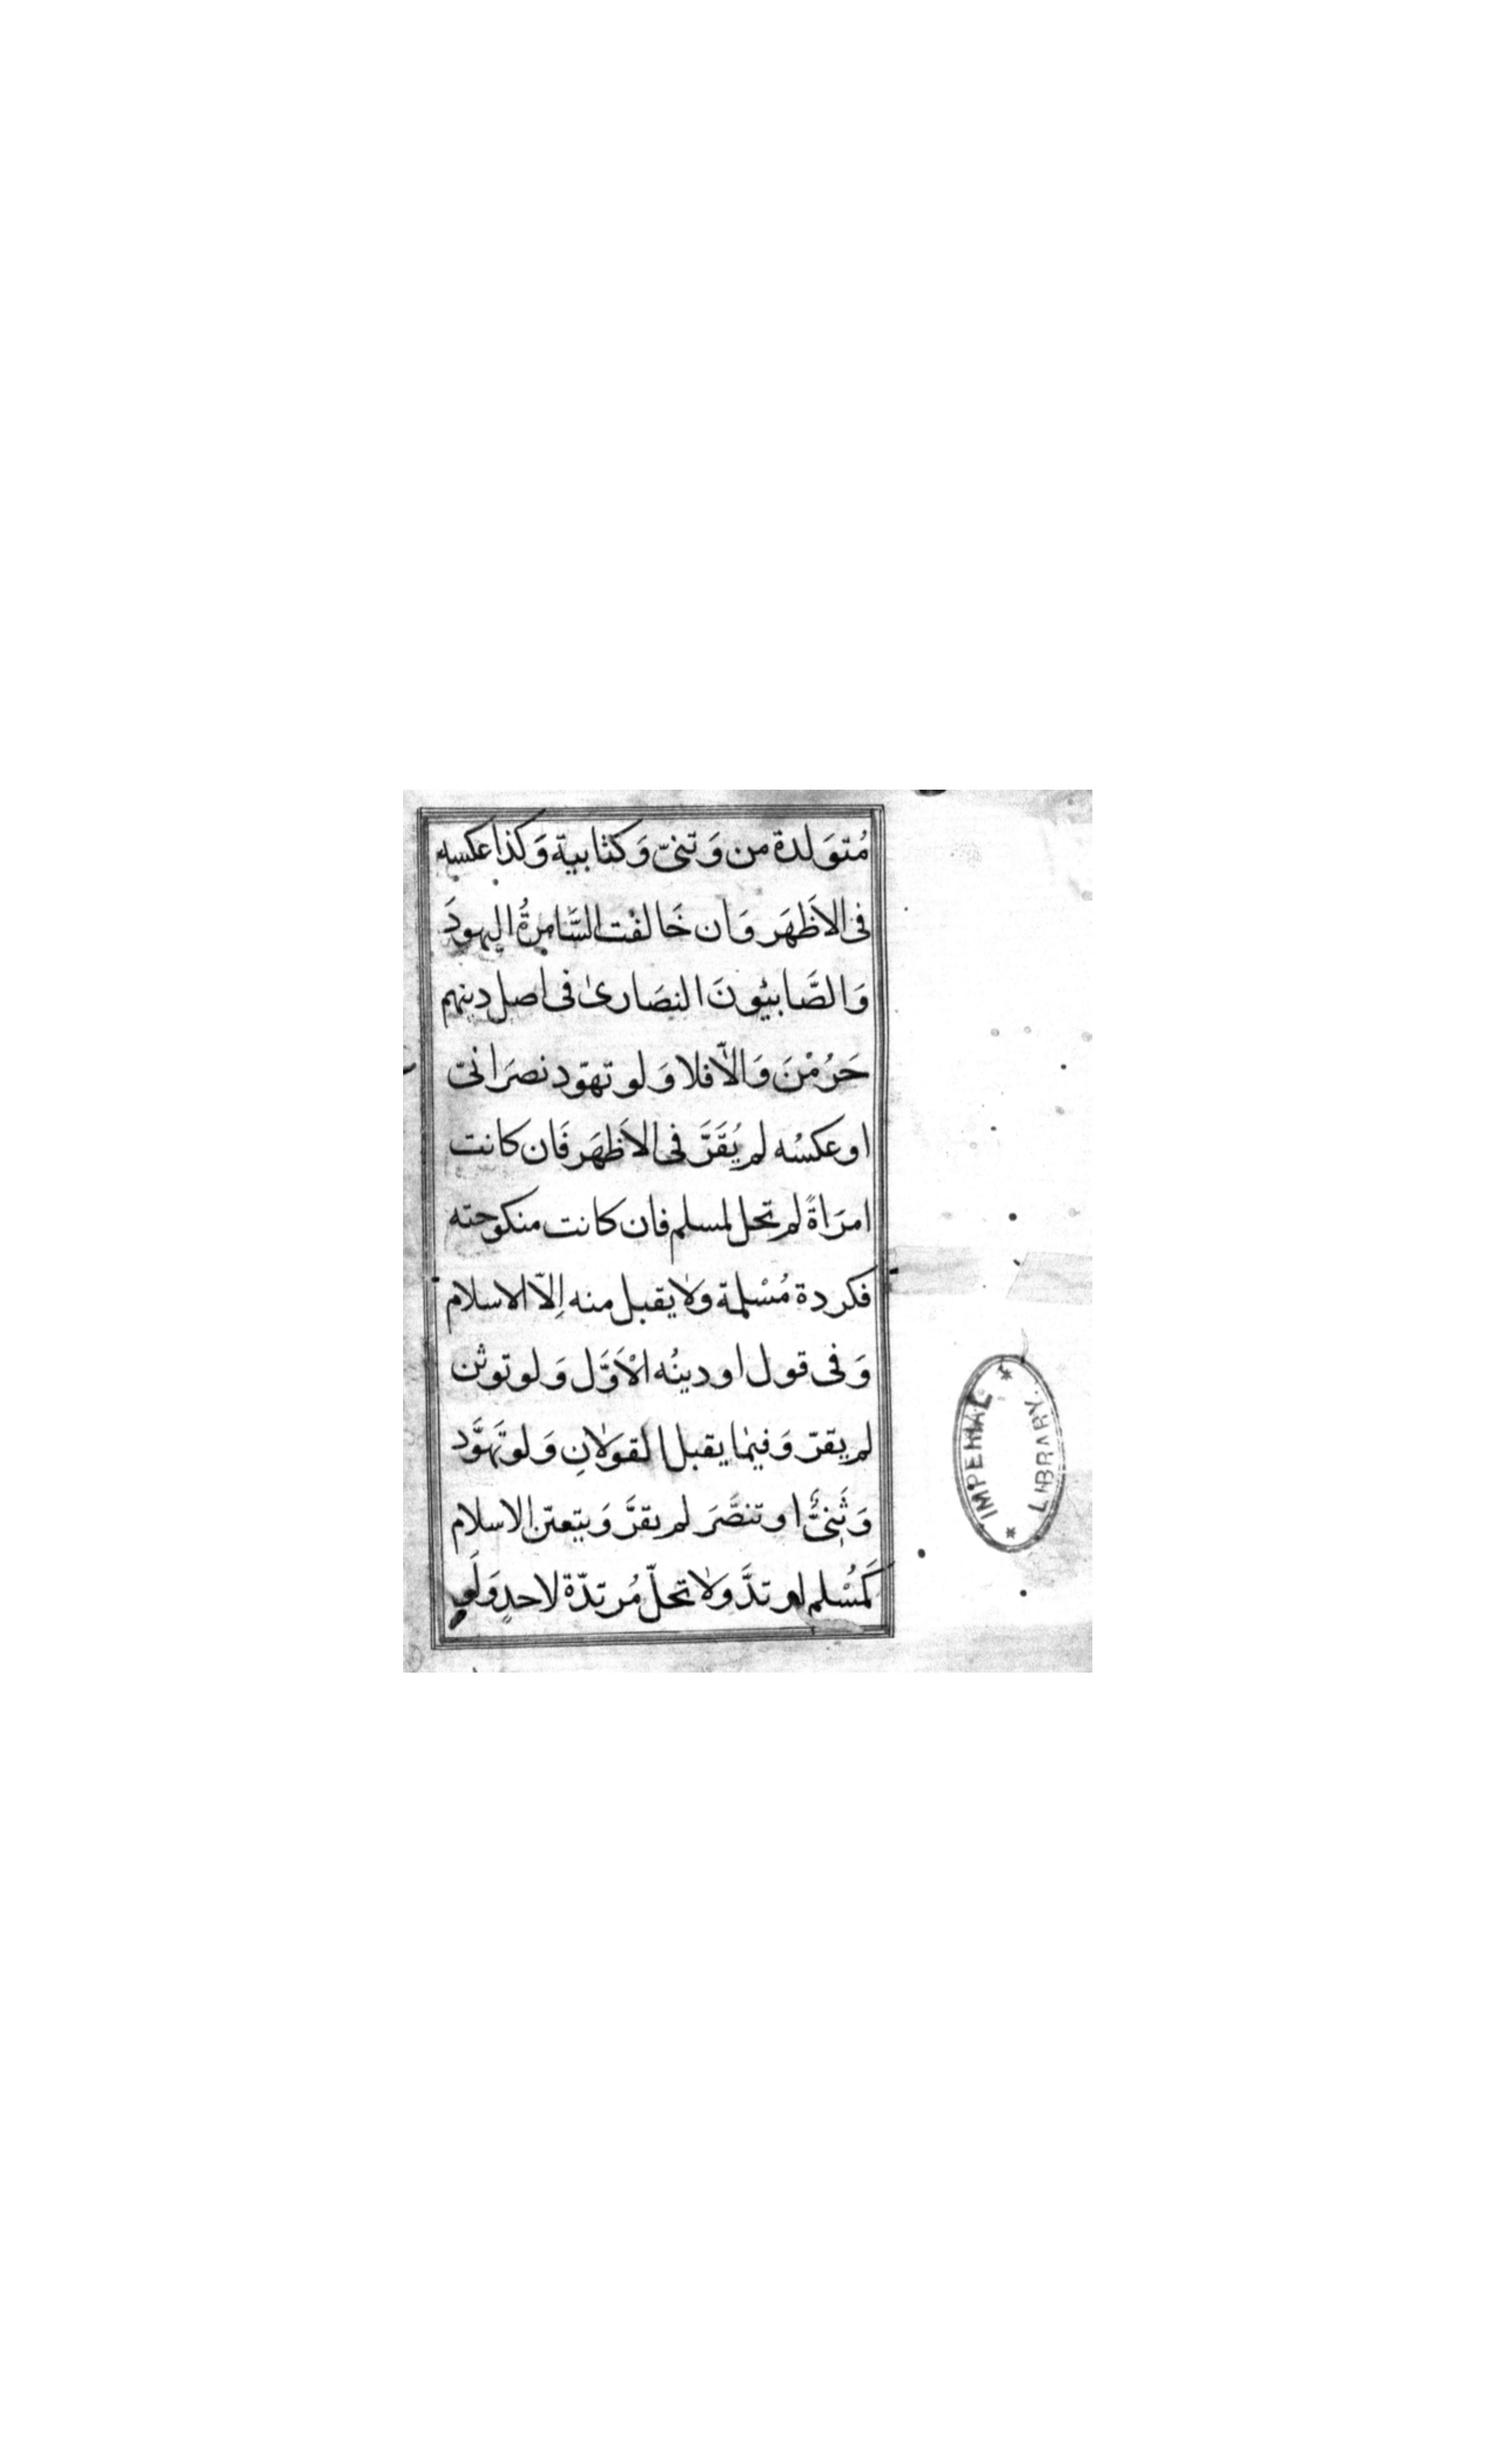 مُتوَلدة من وَثنىّ وَكتابية وَكذا عكسه
فى الاَظهَر وَان خَالفْت السَّامرةُ اليهودَ
وَالصَّابيُونَ النصَارىٰ فى اصل دينهم
حَرُمْنَ وَالاّ فلا وَلو تهوّد نصرَانىّ
او عكسُه لم يُقَرَّ فى الاَظهَر فَان كانت
امرَاةً لم تحل لمسلم فان كانت منكوحته
فكردة مُسْلمة وَلا يقبل منه اِلاّ الاسلام
وَفى قول او دينُه الاَوَّل وَلو توثن
لم يقرّ وَفيمَا يقبل القولانِ وَلو تهَوَّد
وَثَنىٌّ او تنصَّرَ لم يقرَّ وَيتعيّن الاسلام
كمُسْلم ارتدَّ وَلا تحلّ مُرتدّة لاحدٍ وَلَو
IMPERIAL LIBRARY